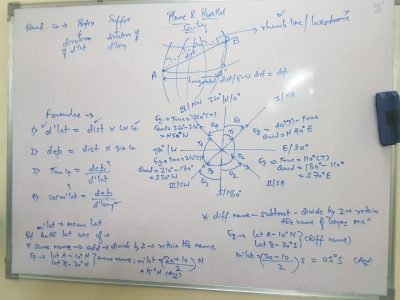 Quad. co → Prefix Suffix
↓ ↓
direction direction of
of d'lat d'long
Plane & Parallel
Sailing
rhumb line / Loxodromic
A
B
dist
co
longitudinal dist / E-W dist = dep
Formulae →
1) d'lat = dist × cos co
2) dep = dist × sin co
3) Tan co = dep / d'lat
4) cos m'lat = dep / d'long
IV/NW 360°/N/0°
I/NE
Eg:→ True = 310°(T)
Quad = 360-310
= N50°W
Eg → 40°(T) → True
Quad = N40°E
W
E/90°
Eg → True = 210°(T)
Quad = 210-180°
= S30°W
Eg → True = 110°(T)
Quad = 180-110°
= S70°E
III/SW
II/SE
S/180°
m'lat → mean lat.
If both lat are of →
* same name → add → divide by 2 → retain the name.
Eg → lat A - 10°N
lat B - 20°N } same name; m'lat = (20+10 / 2) N
= 15°N (Ans)
* diff. name → subtract → divide by 2 → retain
the name of larger one
Eg:→ lat A - 10°N
lat B - 20°S } (diff name)
m'lat = (20-10 / 2) S = 05°S (Ans)